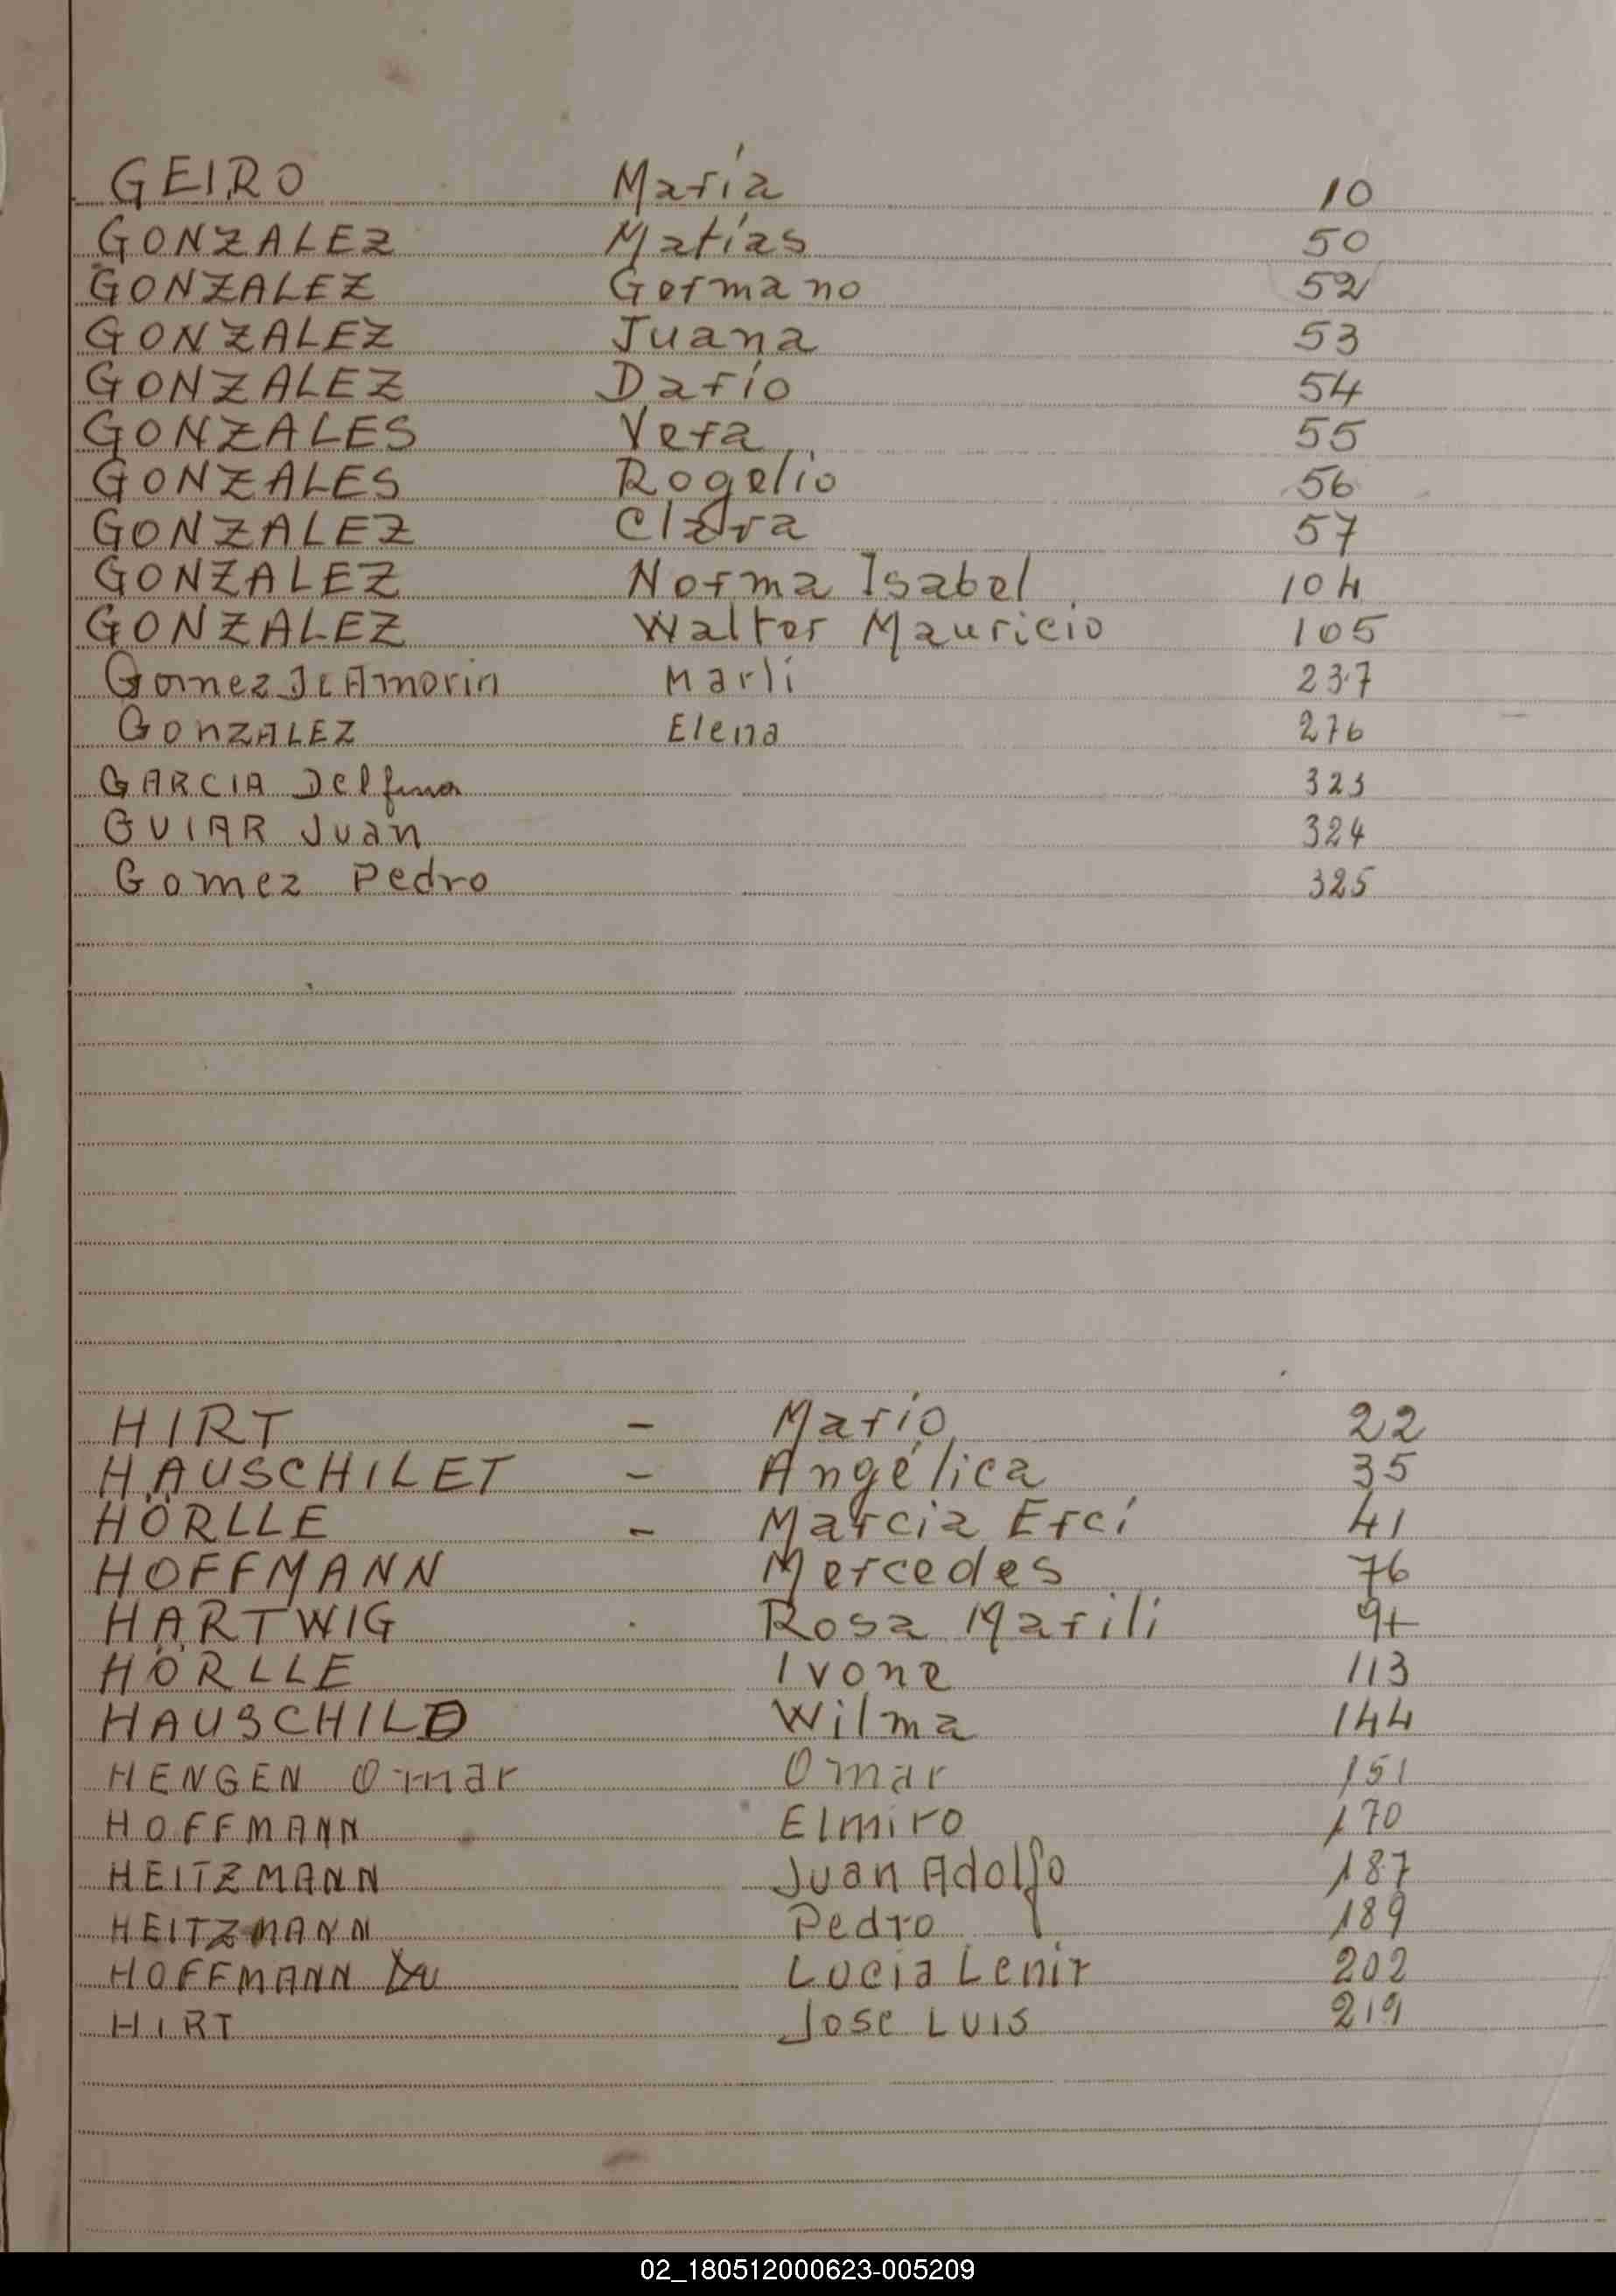 GEIRO María 10
GONZALEZ Matías 50
GONZALEZ Germano 52
GONZALEZ Juana 53
GONZALEZ Darío 54
GONZALES Vera 55
GONZALES Rogelio 56
GONZALEZ Clara 57
GONZALEZ Norma Isabel 104
GONZALEZ Walter Mauricio 105
Gomez De Amorin Marli 237
GonZALEZ Elena 276
GARCIA Delfina 323
GUIAR Juan 324
Gomez Pedro 325
HIRT - Marío 22
HAUSCHILET - Angélica 35
HÖRLLE - Marcia Ercí 41
HOFFMANN Mercedes 76
HARTWIG Rosa Marili 97
HÖRLLE Ivone 113
HAUSCHILD Wilma 144
HENGEN Omar Omar 151
HOFFMANN Elmiro 170
HEITZMANN Juan Adolfo 187
HEITZMANN Pedro 189
HOFFMANN Lucia Lenir 202
HIRT Jose Luis 219
02_180512000623-005209